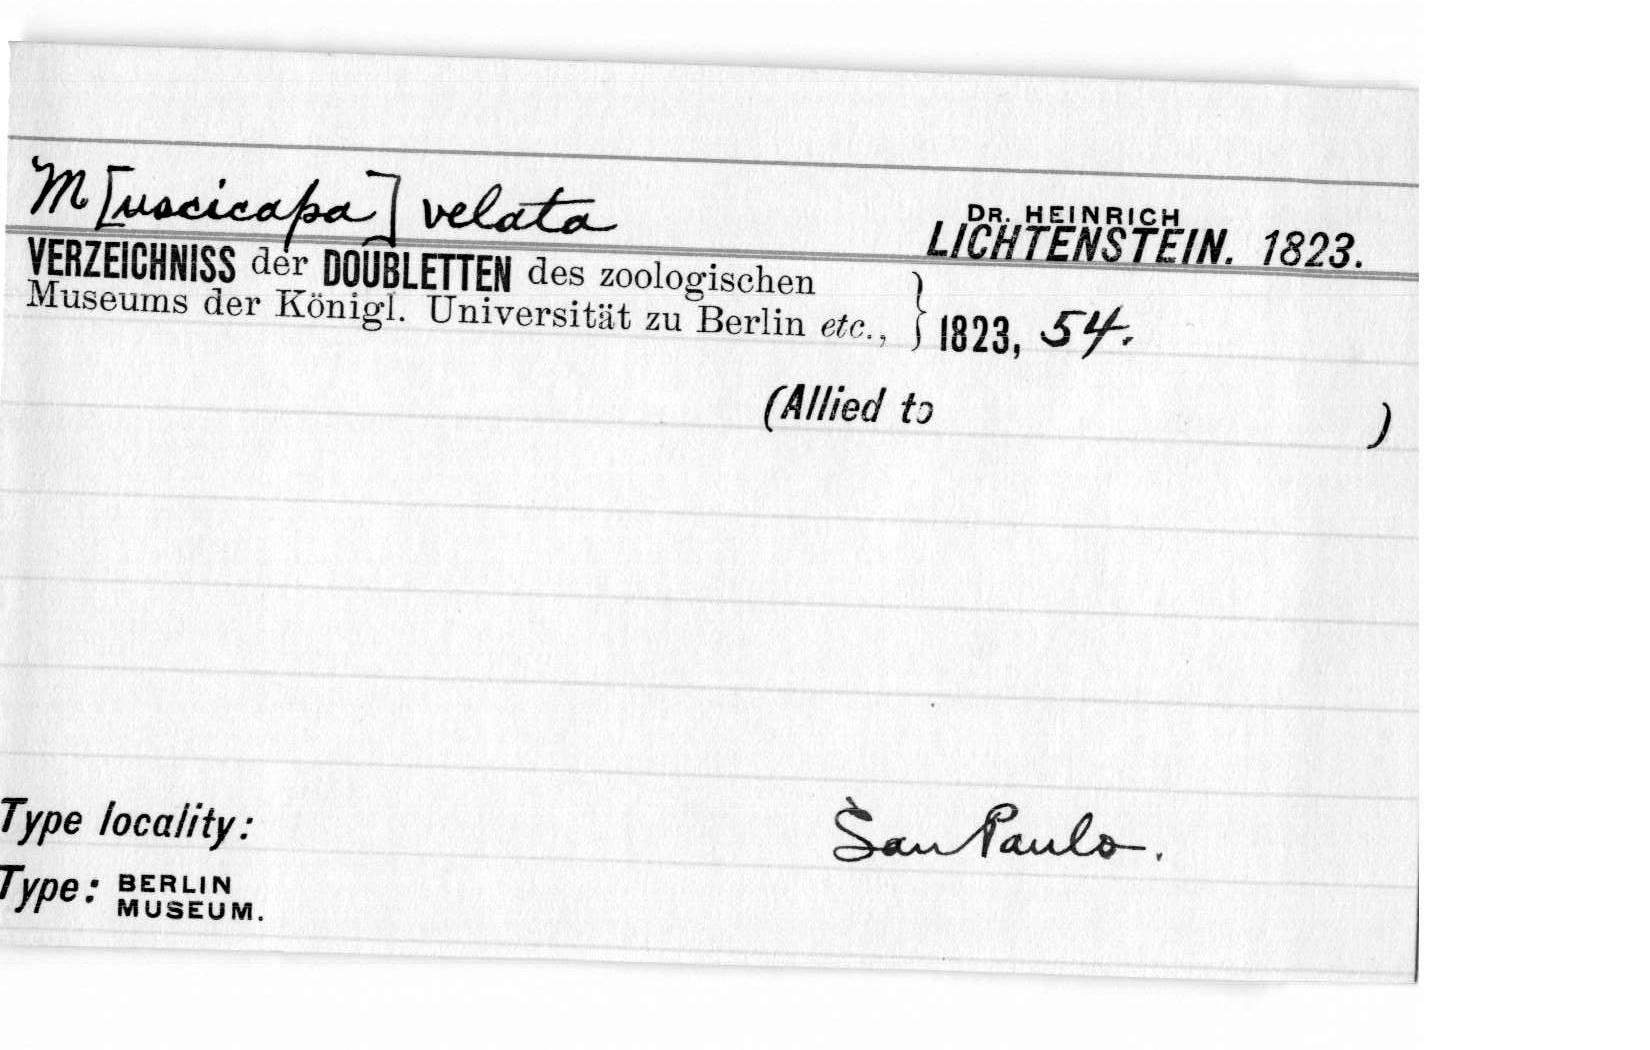 M[uscicapa] velata
DR. HEINRICH
LICHTENSTEIN. 1823.
VERZEICHNISS der DOUBLETTEN des zoologischen
Museums der Königl. Universität zu Berlin etc., } 1823, 54.
(Allied to )
Type locality: San Paulo.
Type: BERLIN
MUSEUM.